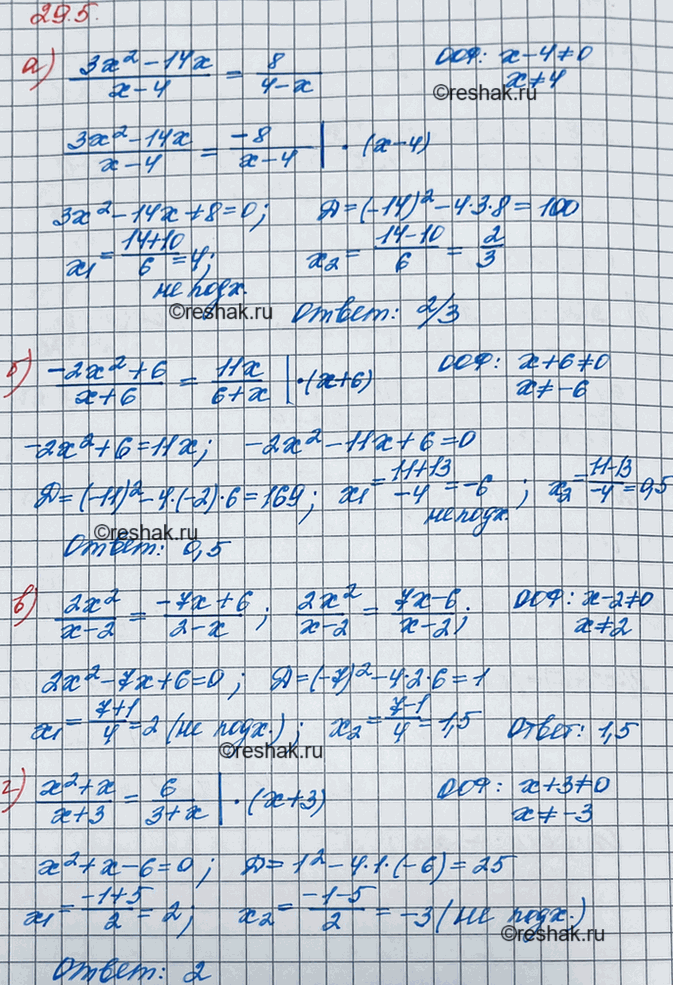 29.5.
а) (3x² - 14x)/(x - 4) = 8/(4 - x) ООФ: x - 4 ≠ 0
x ≠ 4
©reshak.ru
(3x² - 14x)/(x - 4) = -8/(x - 4) | · (x - 4)
3x² - 14x + 8 = 0; Д = (-14)² - 4·3·8 = 100
x₁ = (14+10)/6 = 4; x₂ = (14-10)/6 = 2/3
не подх.
©reshak.ru
Ответ: 2/3
б) (-2x² + 6)/(x + 6) = 11x/(6 + x) | · (x + 6) ООФ: x + 6 ≠ 0
x ≠ -6
-2x² + 6 = 11x; -2x² - 11x + 6 = 0
Д = (-11)² - 4·(-2)·6 = 169; x₁ = (11+13)/-4 = -6; x₂ = (11-13)/-4 = 0,5
не подх.
©reshak.ru
Ответ: 0,5
в) 2x²/(x - 2) = (-7x + 6)/(2 - x); 2x²/(x - 2) = (7x - 6)/(x - 2); ООФ: x - 2 ≠ 0
x ≠ 2
2x² - 7x + 6 = 0; Д = (-7)² - 4·2·6 = 1
x₁ = (7+1)/4 = 2 (не подх.); x₂ = (7-1)/4 = 1,5 Ответ: 1,5
©reshak.ru
г) (x² + x)/(x + 3) = 6/(3 + x) | · (x + 3) ООФ: x + 3 ≠ 0
x ≠ -3
x² + x - 6 = 0; Д = 1² - 4·1·(-6) = 25
x₁ = (-1+5)/2 = 2; x₂ = (-1-5)/2 = -3 (не подх.)
©reshak.ru
Ответ: 2